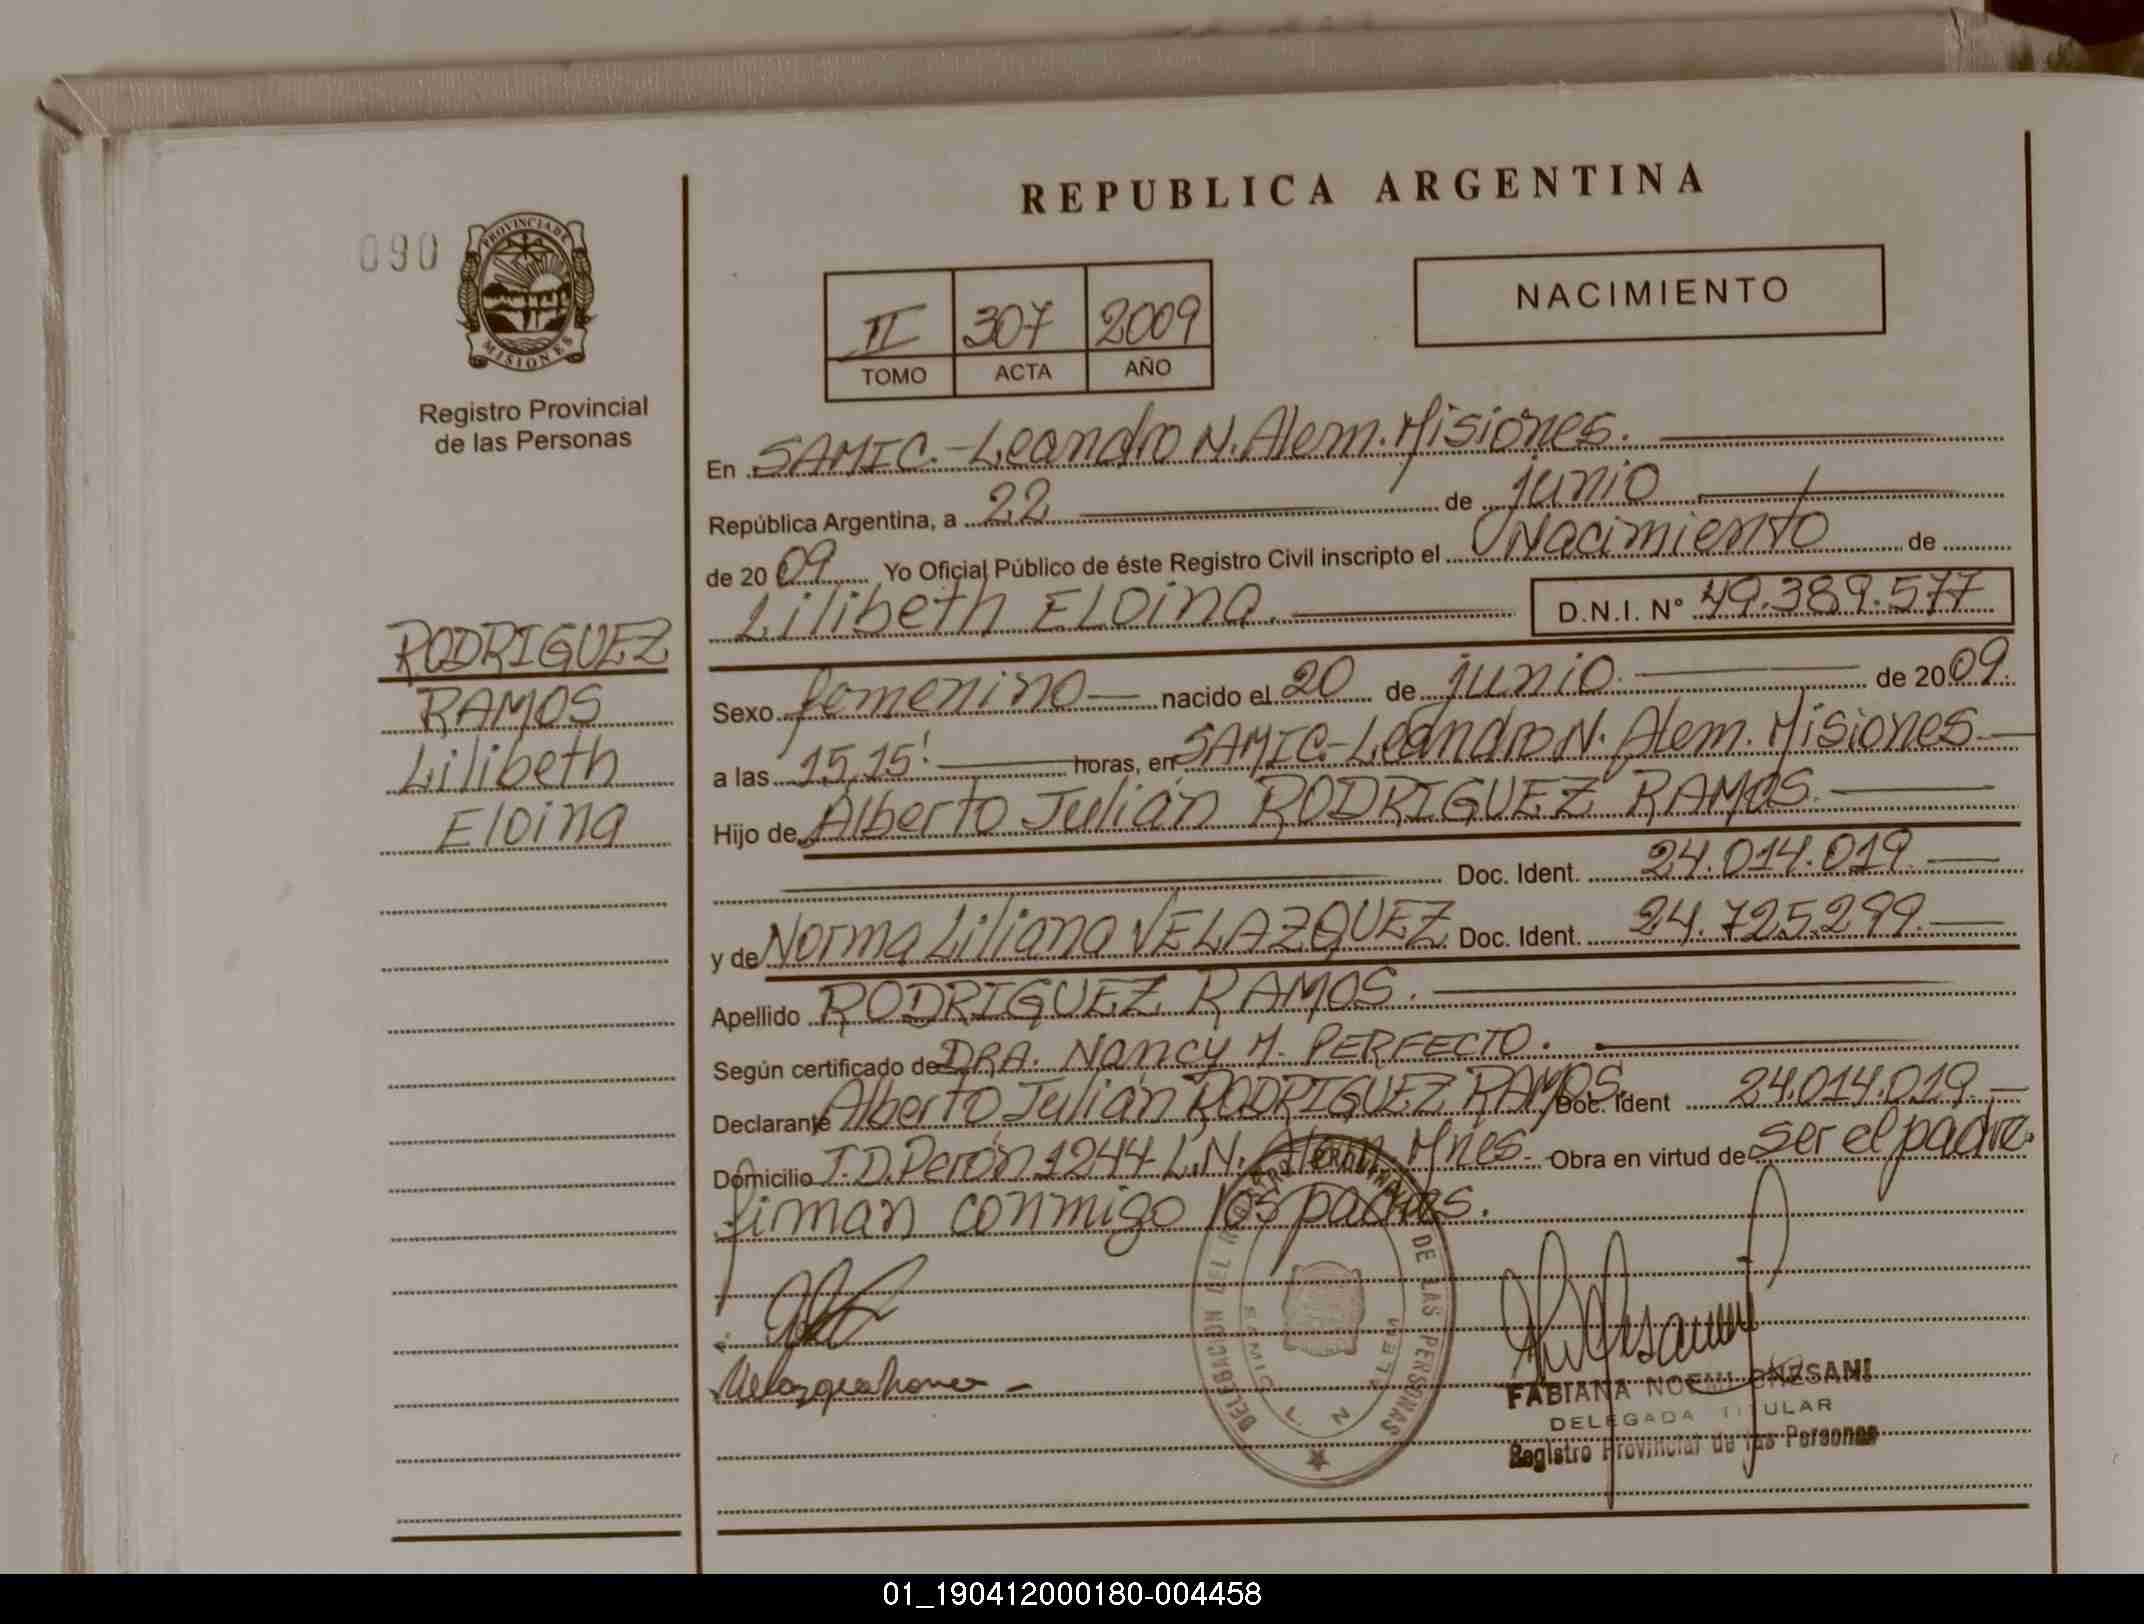 REPUBLICA ARGENTINA
090
PROVINCIA DE MISIONES
Registro Provincial
de las Personas
II 307 2009
TOMO ACTA AÑO
NACIMIENTO
RODRIGUEZ
RAMOS
Lilibeth
Eloina
En SAMIC.-Leandro N. Alem. Misiones.
República Argentina, a 22 de junio
de 2009 Yo Oficial Público de éste Registro Civil inscripto el Nacimiento de
Lilibeth Eloina. D.N.I. N° 49.389.577
Sexo femenino nacido el 20 de junio. de 2009.
a las 15,15' horas, en SAMIC-Leandro N. Alem. Misiones
Hijo de Alberto Julián RODRIGUEZ RAMOS.
Doc. Ident. 24.014.019.
y de Norma Liliana VELAZQUEZ. Doc. Ident. 24.725.299.
Apellido RODRIGUEZ RAMOS.
Según certificado de DRA. Nancy M. PERFECTO.
Declarante Alberto Julián RODRIGUEZ RAMOS. Doc. Ident 24.014.019.
Domicilio J.D.Perón 1244 L.N. Alem. Mnes. Obra en virtud de ser el padre.
firman conmigo los padres.
DELEGACION DEL REGISTRO PROVINCIAL DE LAS PERSONAS
SAMIC L N ALEM
FABIANA NOEMI
DELEGADA TITULAR
Registro Provincial de las Personas
01_190412000180-004458